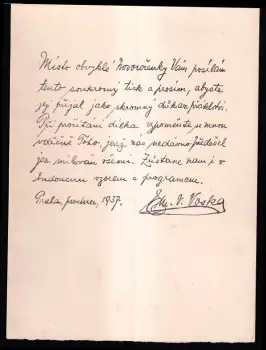 Místo obvyklé Novoročenky Vám posílám
tento soukromý tisk a prosím, abyste
jej přijal jako skromný důkaz přátelství.
Při počítání dílka vzpomeňte se mnou
vděčně Toho, jenž nás nedávno předešel
jsa milován všemi. Zůstane nám i v
budoucnu vzorem a programem.
Praha, prosinec, 1937.
V. Voska